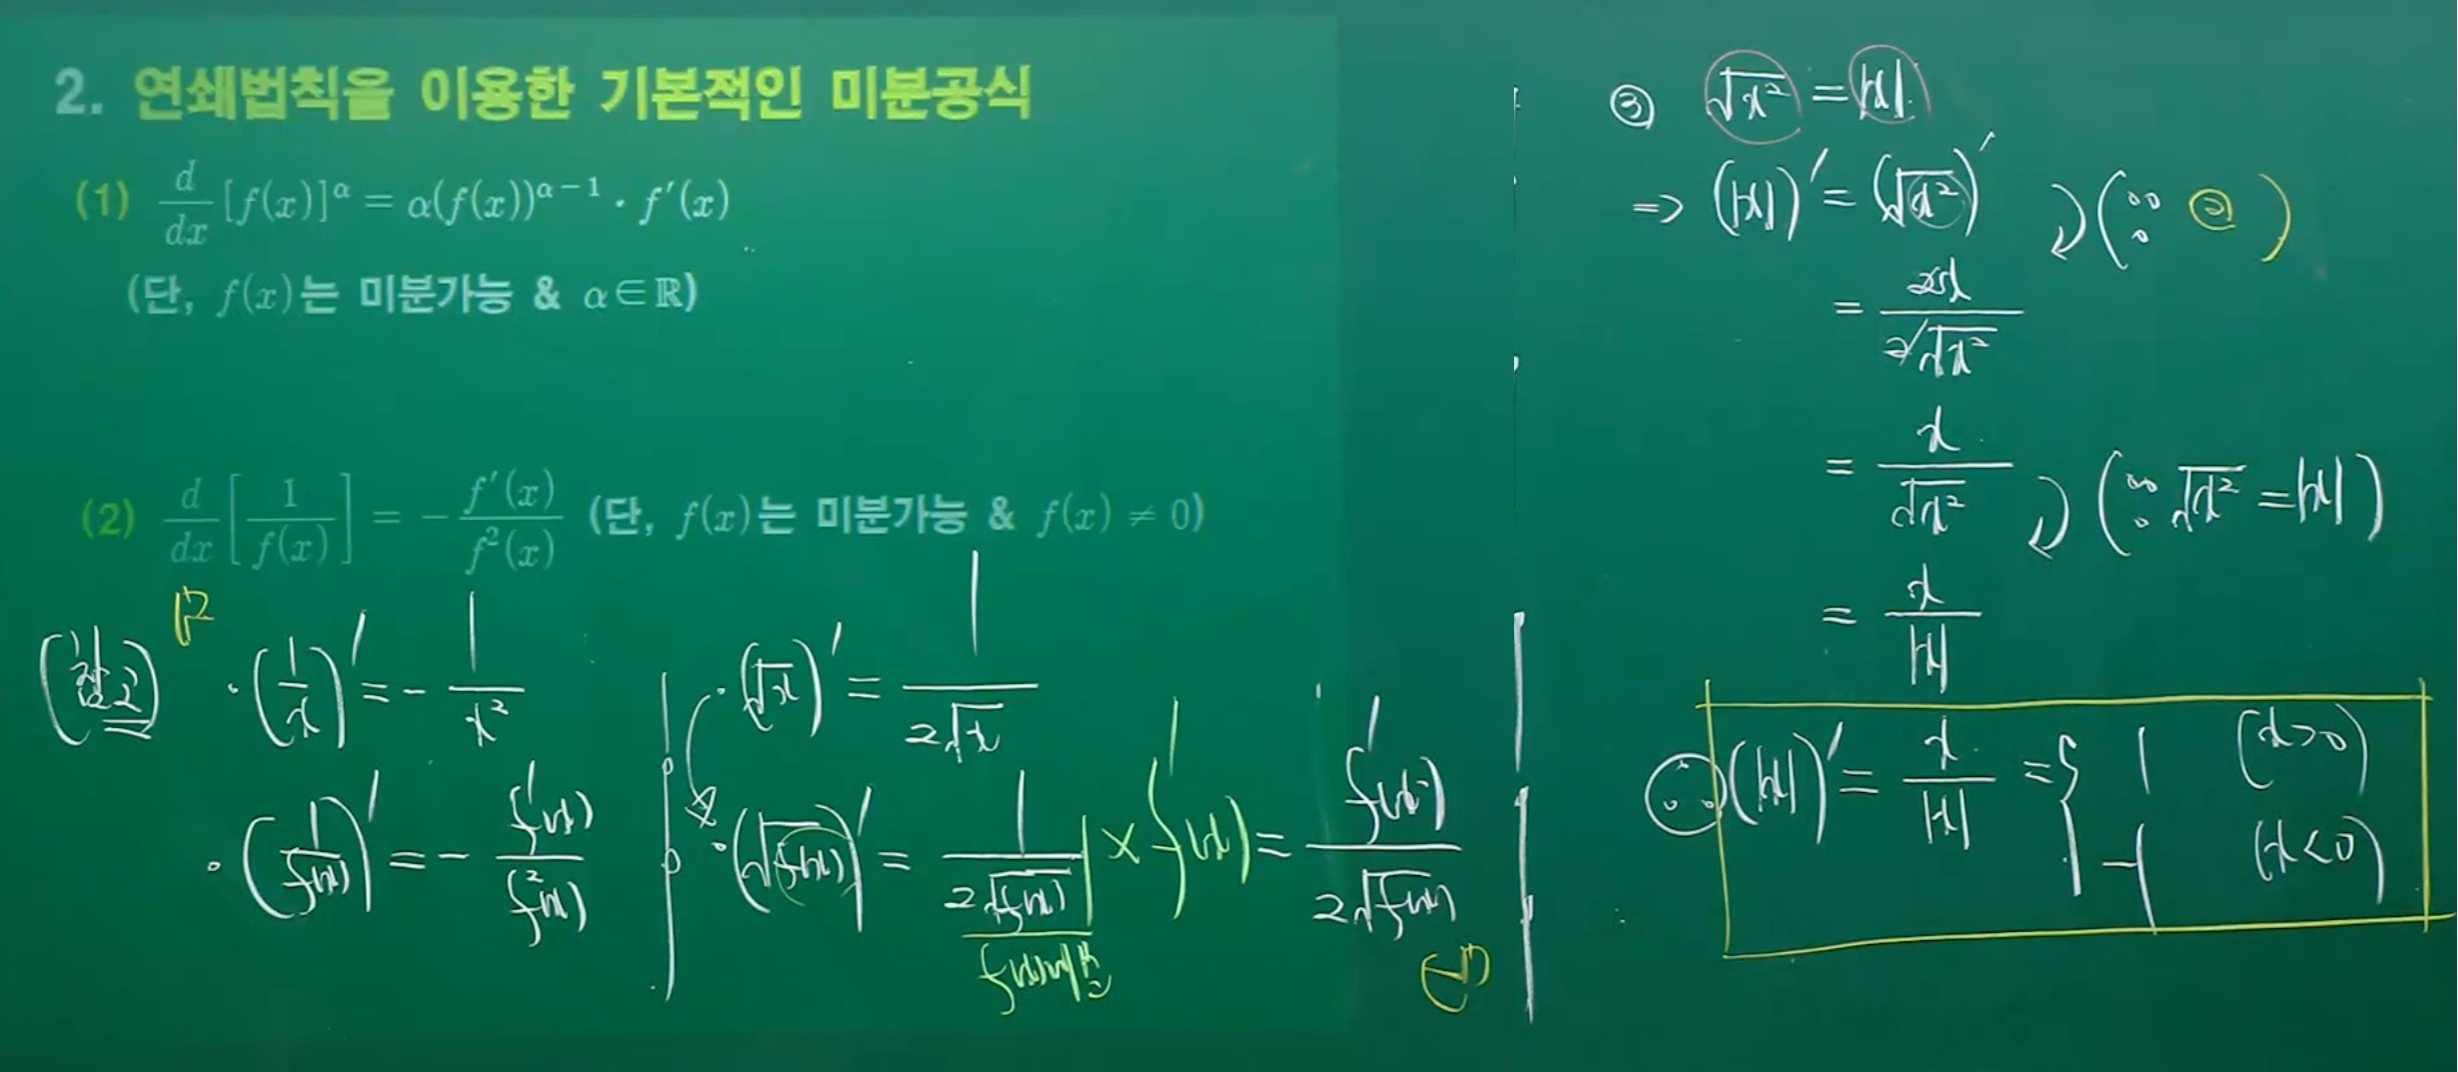 2. 연쇄법칙을 이용한 기본적인 미분공식
(1) d/dx [f(x)]^α = α(f(x))^(α-1) · f′(x)
(단, f(x)는 미분가능 & α∈ℝ)
(2) d/dx [1/f(x)] = - f′(x)/f²(x) (단, f(x)는 미분가능 & f(x) ≠ 0)
· (1/x)′ = - 1/x²
· (1/f(x))′ = - f′(x)/f²(x)
· (√x)′ = 1/(2√x)
· (√f(x))′ = 1/(2√f(x)) × f′(x) = f′(x)/(2√f(x))
f(x)미분
③ √x² = |x|
⇒ (|x|)′ = (√x²)′ (∵ ②)
= 2x/(2√x²)
= x/√x² (∵ √x² = |x|)
= x/|x|
∴ (|x|)′ = x/|x| = { 1 (x>0)
-1 (x<0)